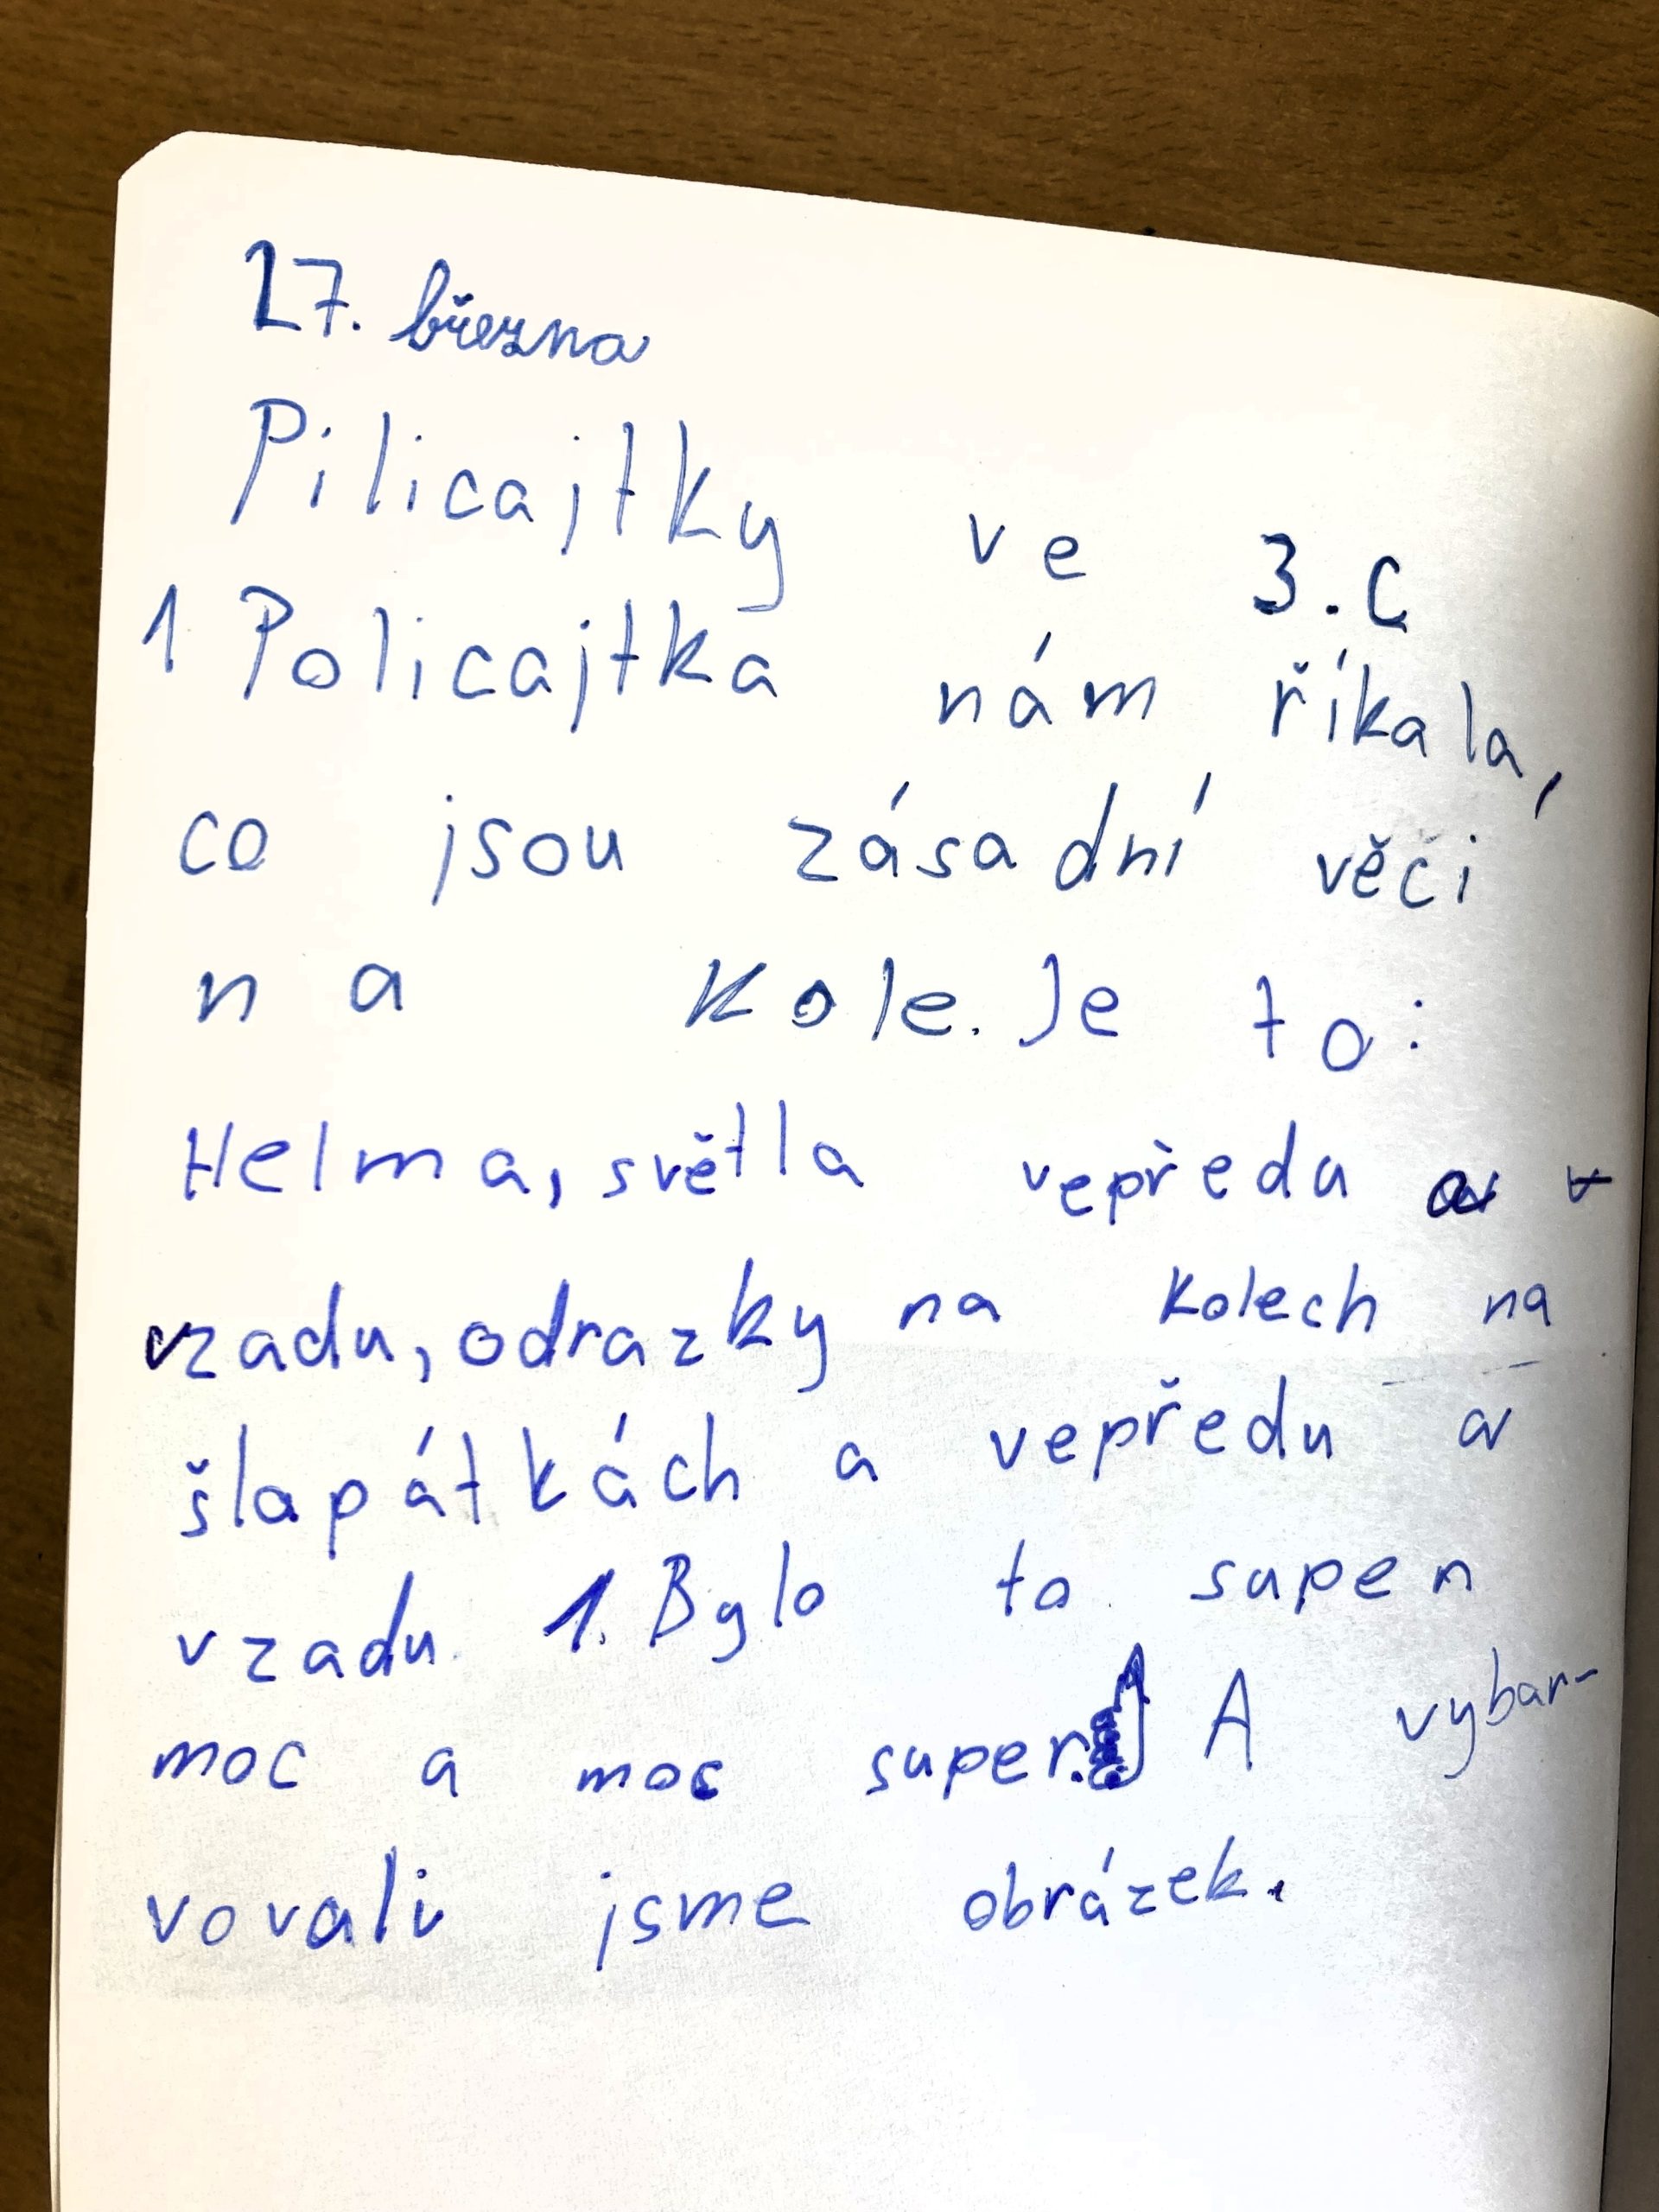 27. března
Pilicajtky ve 3.C
1 Policajtka nám říkala,
co jsou zásadní věci
na kole. Je to:
Helma, světla vepředu a
vzadu, odrazky na kolech na
šlapátkách a vepředu a
vzadu. 1. Bylo to supen
moc a moc super. A vybar-
vovali jsme obrázek.